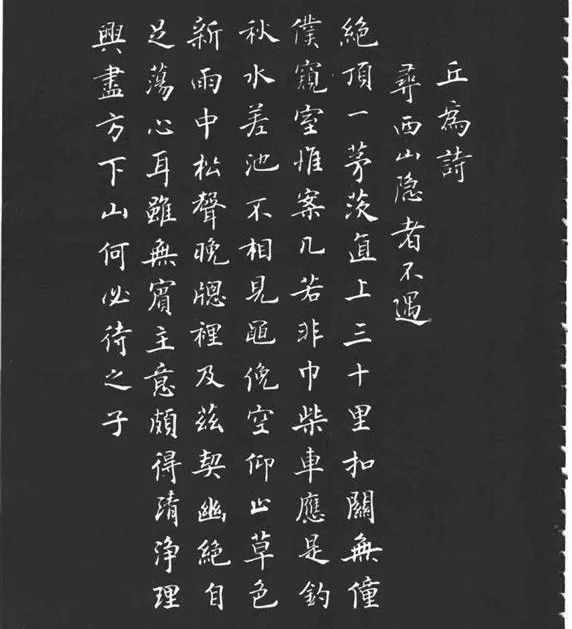 丘爲詩
尋西山隐者不遇
絶頂一茅茨直上三十里扣關無僮
僕窺室惟案几若非巾柴車應是釣
秋水差池不相見黽俛空仰止草色
新雨中松聲晚牕裡及茲契幽絶自
足蕩心耳雖無賓主意頗得清淨理
興盡方下山何必待之子